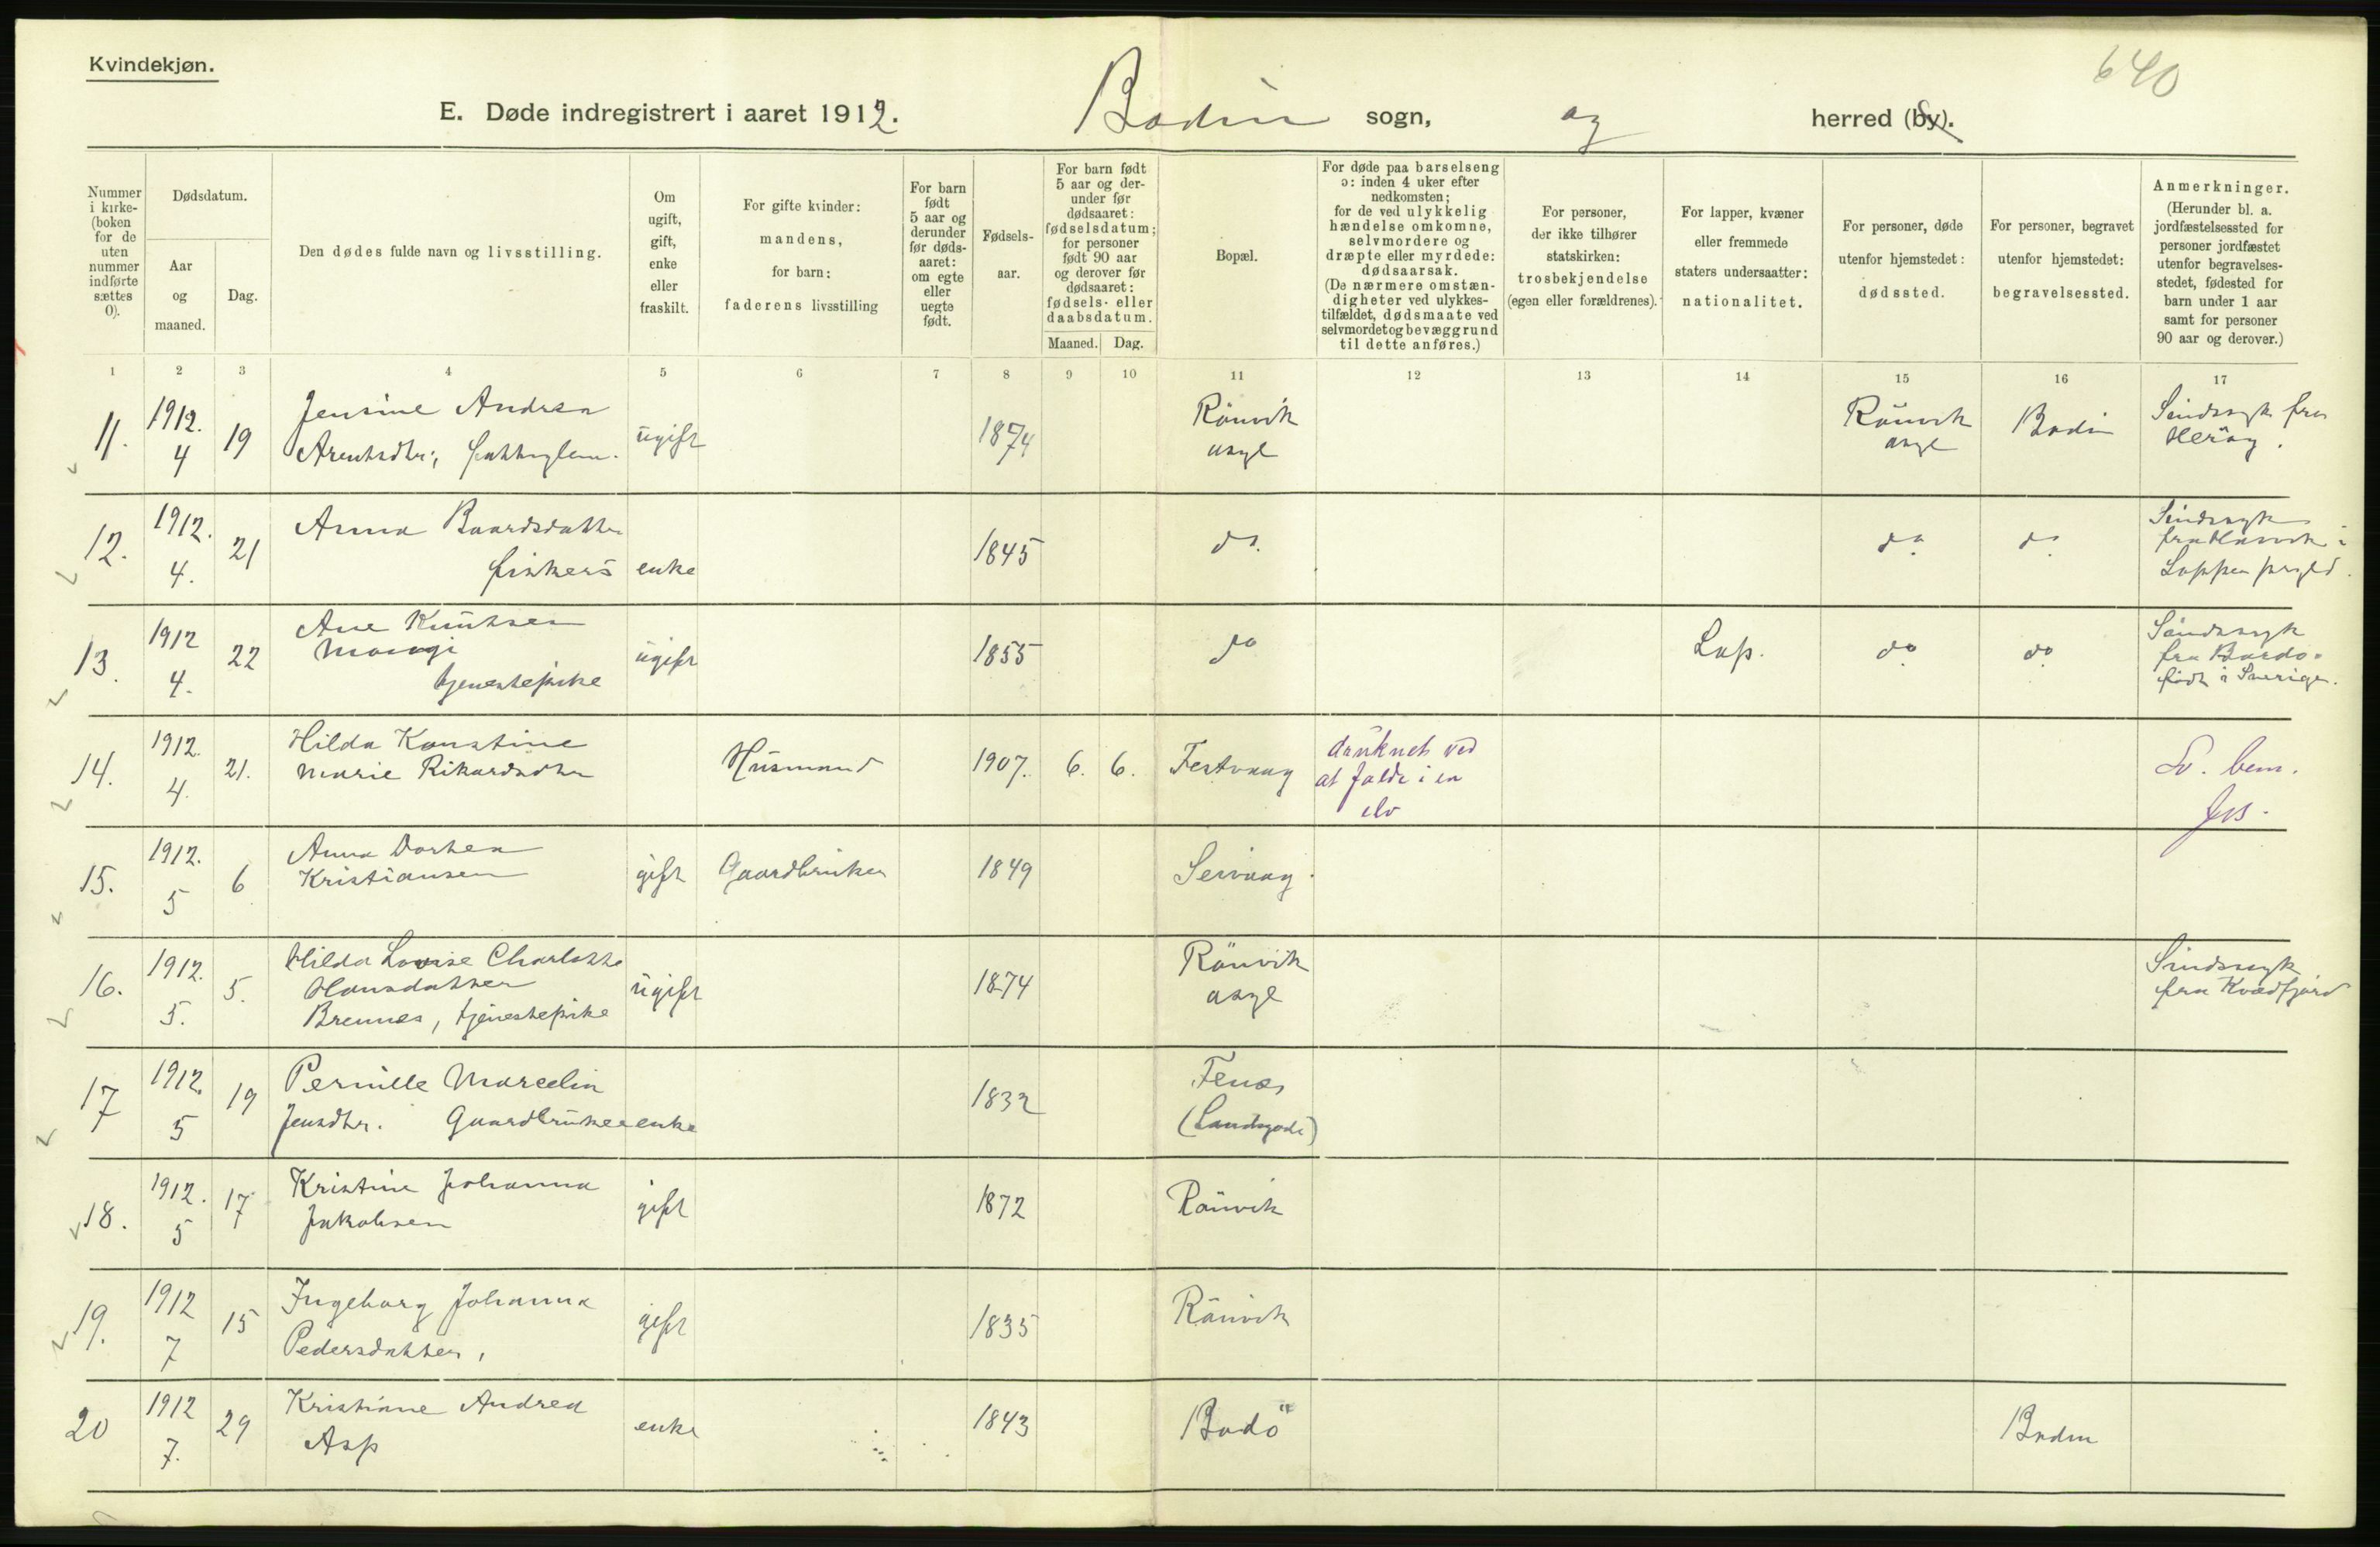 Kvindekjøn.
640
E. Døde indregistrert i aaret 1912. Bodin sogn, og herred (by).
Nummer i kirke- (boken for de uten nummer indførte sættes 0).
Dødsdatum.
Aar og maaned.
Dag.
Den dødes fulde navn og livsstilling.
Om ugift, gift, enke eller fraskilt.
For gifte kvinder: mandens, for barn: faderens livsstilling
For barn født 5 aar og derunder før døds- aaret: om egte eller uegte født.
Fødsels- aar.
For barn født 5 aar og der- under før dødsaaret: fødselsdatum; for personer født 90 aar og derover før dødsaaret: fødsels- eller daabsdatum.
Maaned. Dag.
Bopæl.
For døde paa barselseng ɔ: inden 4 uker efter nedkomsten; for de ved ulykkelig hændelse omkomne, selvmordere og dræpte eller myrdede: dødsaarsak. (De nærmere omstæn- digheter ved ulykkes- tilfældet, dødsmaate ved selvmordet og bevæggrund til dette anføres.)
For personer, der ikke tilhører statskirken: trosbekjendelse (egen eller forældrenes).
For lapper, kvæner eller fremmede staters undersaatter: nationalitet.
For personer, døde utenfor hjemstedet: dødssted.
For personer, begravet utenfor hjemstedet: begravelsessted.
Anmerkninger. (Herunder bl. a. jordfæstelsessted for personer jordfæstet utenfor begravelses- stedet, fødested for barn under 1 aar samt for personer 90 aar og derover.)
1 2 3 4 5 6 7 8 9 10 11 12 13 14 15 16 17
11. 1912. 4 19 Jensine Andrea Arentsdtr., fattiglem. ugift 1874 Rönvik asyl Rönvik asyl Bodin Sindssyk fra Heröy.
12. 1912. 4. 21 Anna Baardsdatter fiskers enke 1845 do. do do Sindssyk fra Hasvik i Loppen prgld.
13. 1912 4. 22 Ane Knutsen tjenestepike ugift 1855 do Lap. do do Sindssyk fra Bardo. født i Sverige.
14. 1912. 4. 21. Hilda Konstine Marie Rikardsdtr Husmand 1907. 6. 6. Festvaag druknet ved at falde i en elv Sv. bem.
15. 1912. 5 6 Anna Dorthea Kristiansen gift Gaardbruker 1849 Seivaag.
16. 1912. 5. 5. Hilda Lovise Charlotte Hansdatter Brennes, tjenestepike ugift 1874 Rönvik asyl Sindssyk fra Kvædfjord
17 1912. 5 19 Pernille Marcelia Jensdtr. Gaardbruker enke 1832 Fenes (Landegode)
18. 1912. 5 17 Kristine Johanna Jakobsen gift 1872 Rönvik
19. 1912 7 15 Ingeborg Johanna Pedersdatter, gift 1835 Rönvik
20 1912 7. 29 Kristiane Andrea Asp enke 1843 Bodö Bodin